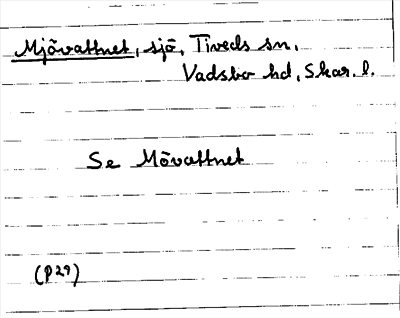 Mjövattnet, sjö, Tiveds sn,
Vadsbo hd, Skar. l.
Se Mövattnet
(P29)